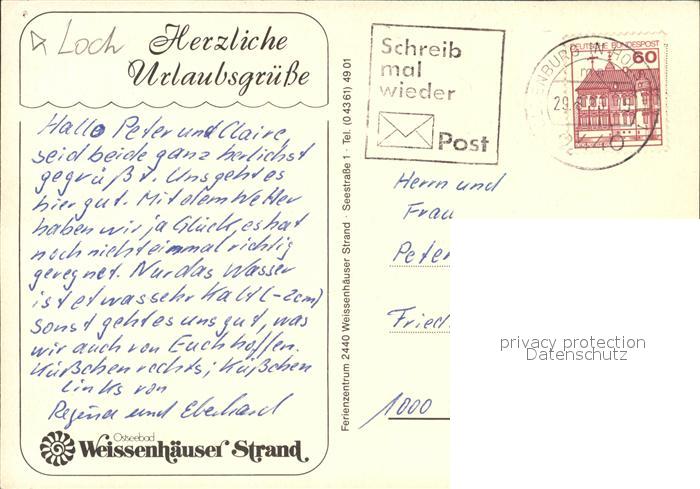 Loch
Herzliche
Urlaubsgrüße
Hallo Peter und Claire,
seid beide ganz herlichst
gegrüßt. Uns geht es
hier gut. Mit dem Wetter
haben wir ja Glück, es hat
noch nicht einmal richtig
geregnet. Nur das Wasser
ist etwas sehr Kalt (-2cm)
sonst geht es uns gut, was
wir auch von Euch hoffen.
Küßchen rechts; Küßchen
links von
Regina und Eberhard
Ostseebad
Weissenhäuser Strand
Ferienzentrum 2440 Weissenhäuser Strand · Seestraße 1 · Tel. (0 43 61) 49 01
Schreib
mal
wieder
Post
DEUTSCHE BUNDESPOST
60
ENBURG IN HOL
29
2440
Herrn und
Frau
Peter
Fried
1000
privacy protection
Datenschutz